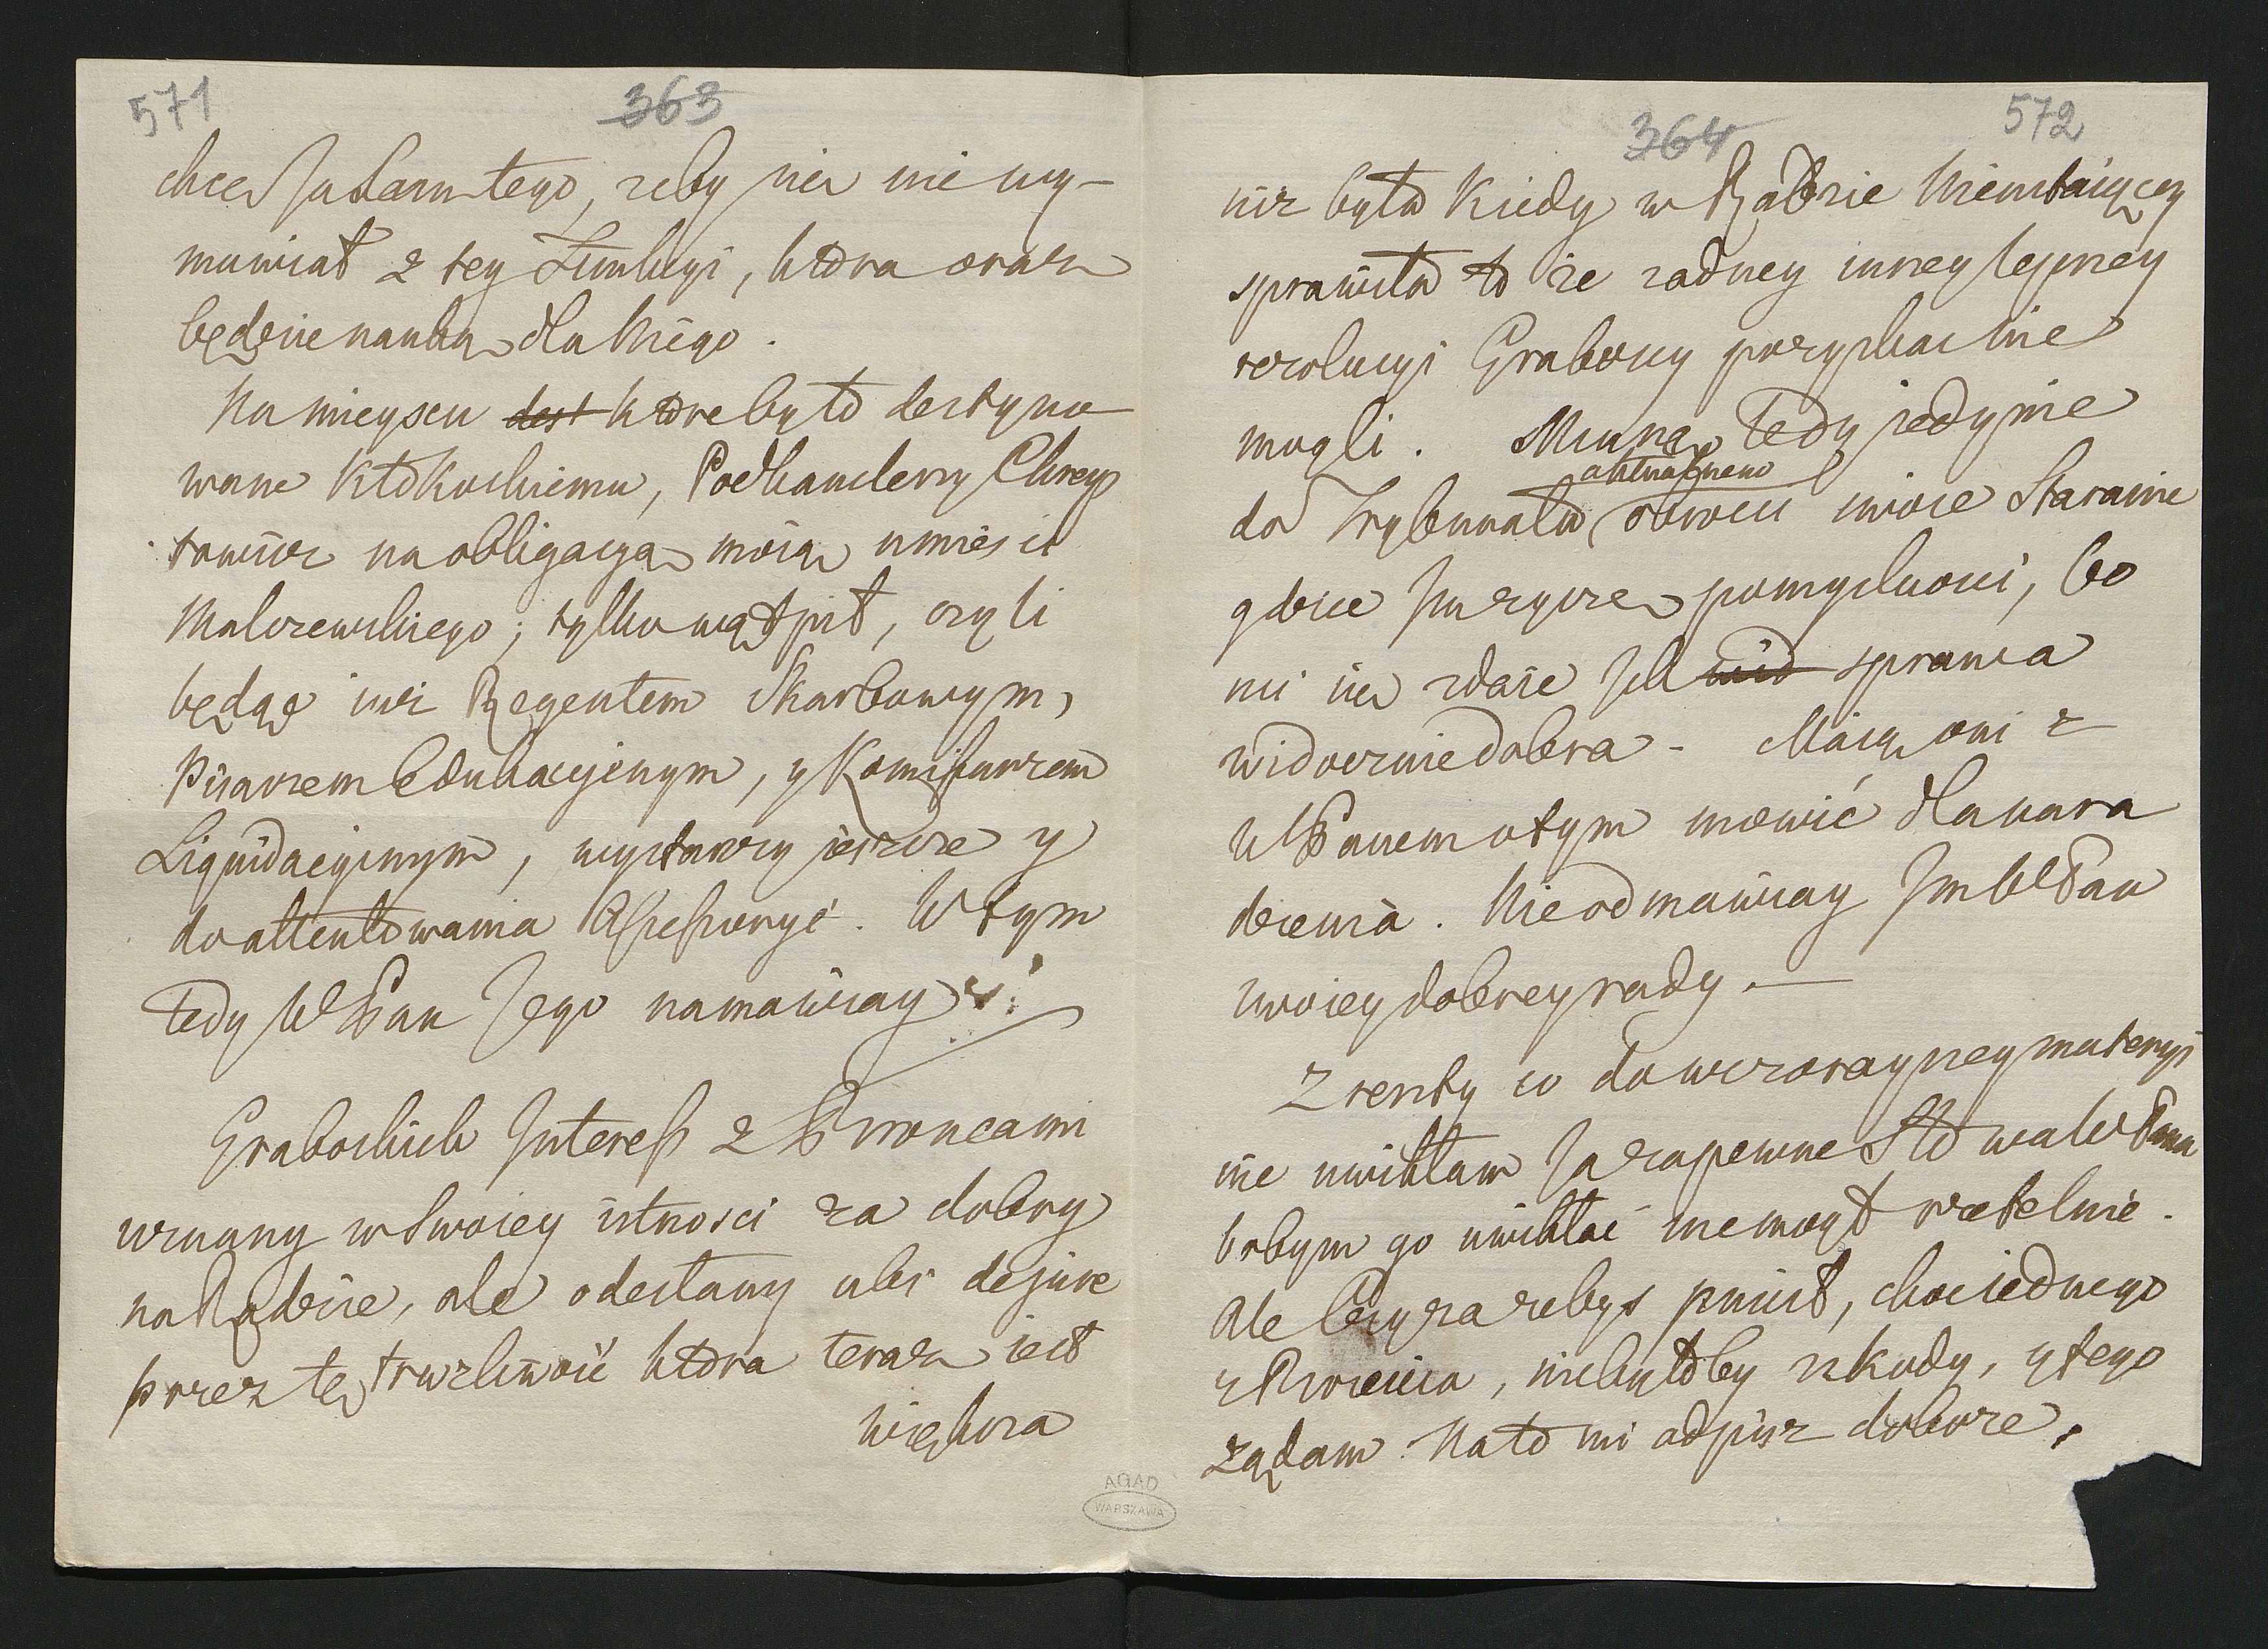 571
363
chcę Ja sam tego, zeby się nie wy-
mawiał z tey Funkcyi, ktora oraz
będzie nauką dla Niego.
Na mieyscu dest ktore było destyno
wane Kłokockiemu, Podkanclerzy Chrep
towicz na obligacyą moią umieścił
Malczewskiego; tylko wątpił, czyli
będąc iuż Regentem Skarbowym,
Pisarzem Edukacyinym, y Komissarzem
Liquidacyinym, wystarczy ieszcze y
do attentowania Assessoryi. W tym
tedy WPan Jego namawiay
Grabockich Interess z
uznany w swoiey istnosci za dobry
na Radzie, ale odesłany ubi de jure
przez tę trwozliwość ktora teraz iest
większa
364
572
niż była kiedy w Radzie Nieustaiącey
sprawiła to że zadney inney lepszey
rezolucyi Graboccy pozyskac nie
mogli. Muszą tedy jedynie
aktualneno
do Trybunału obrocic swoie Staranie
gdzie Im zyczę pomyslnosci, bo
mi się zdaie Ich wid sprawa
widocznie dobra - Maią oni z
WPanem o tym mowić dla nara
dzenia. Nie odmawiay Im WPan
swoiey dobrey rady. —
Zreszty co do wczorayszey materyi
nie uwikłam Ja zapewne Słowa WPana
bobym go uwikłać nie mogł rzetelnie.
Ale zebys puścił, choc iednego
, niebyłoby szkody, y tego
ządam. Na to mi odpisz dobrze.
AGAD
WARSZAWA